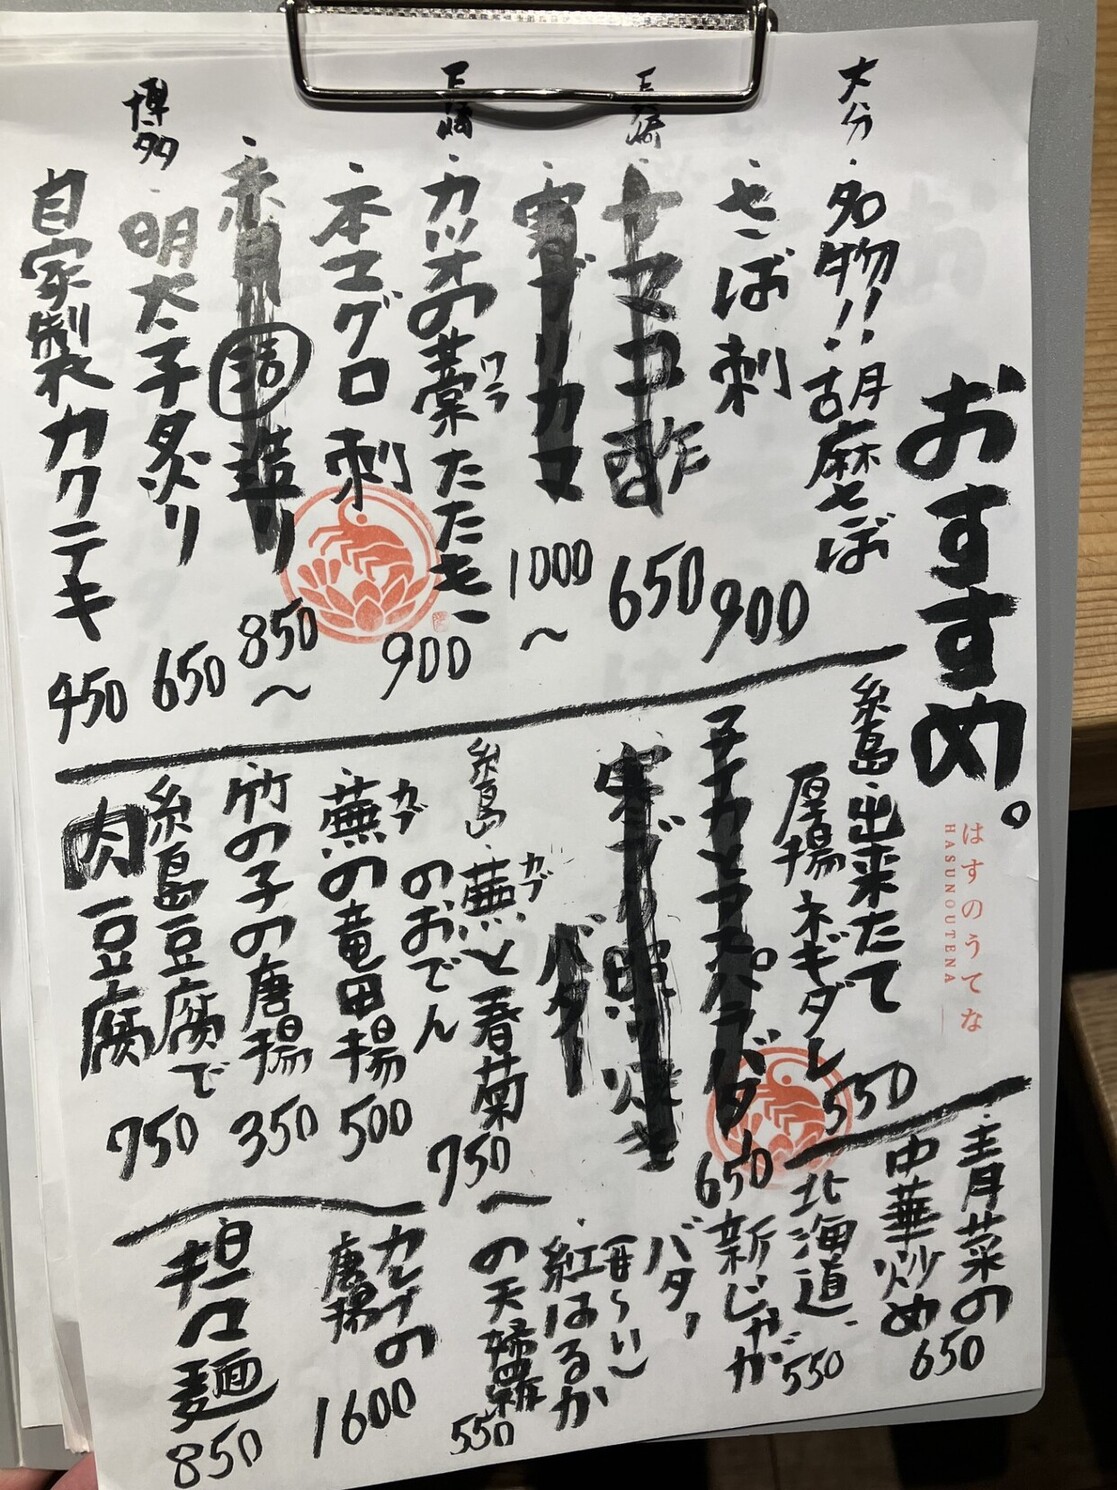 おすすめ。
はすのうてな
HASUNOUTENA
大分・名物!!・胡麻さば
・さば刺
900
長崎
ナマコ酢
650
・寒ブリカマ
1000〜
長崎・カツオの藁たたき
ワラ
900
・本マグロ刺
・赤貝
造り
850〜
博多・明太子炙り
650
自家製カクテキ
450
糸島・出来たて
厚揚ネギダレ
550
子イカとアスパラバタ
650
寒ブリ照り焼き
バター
糸島・蕪と春菊
カブ
のおでん
750
・蕪の竜田揚
カブ
500
・竹の子の唐揚
350
糸島豆腐で
肉豆腐
750
・青菜の
中華炒め
650
北海道・
新じゃが
バター
550
甘〜い
・紅はるか
の天婦羅
550
カレイの
唐揚
1600
担々麺
850